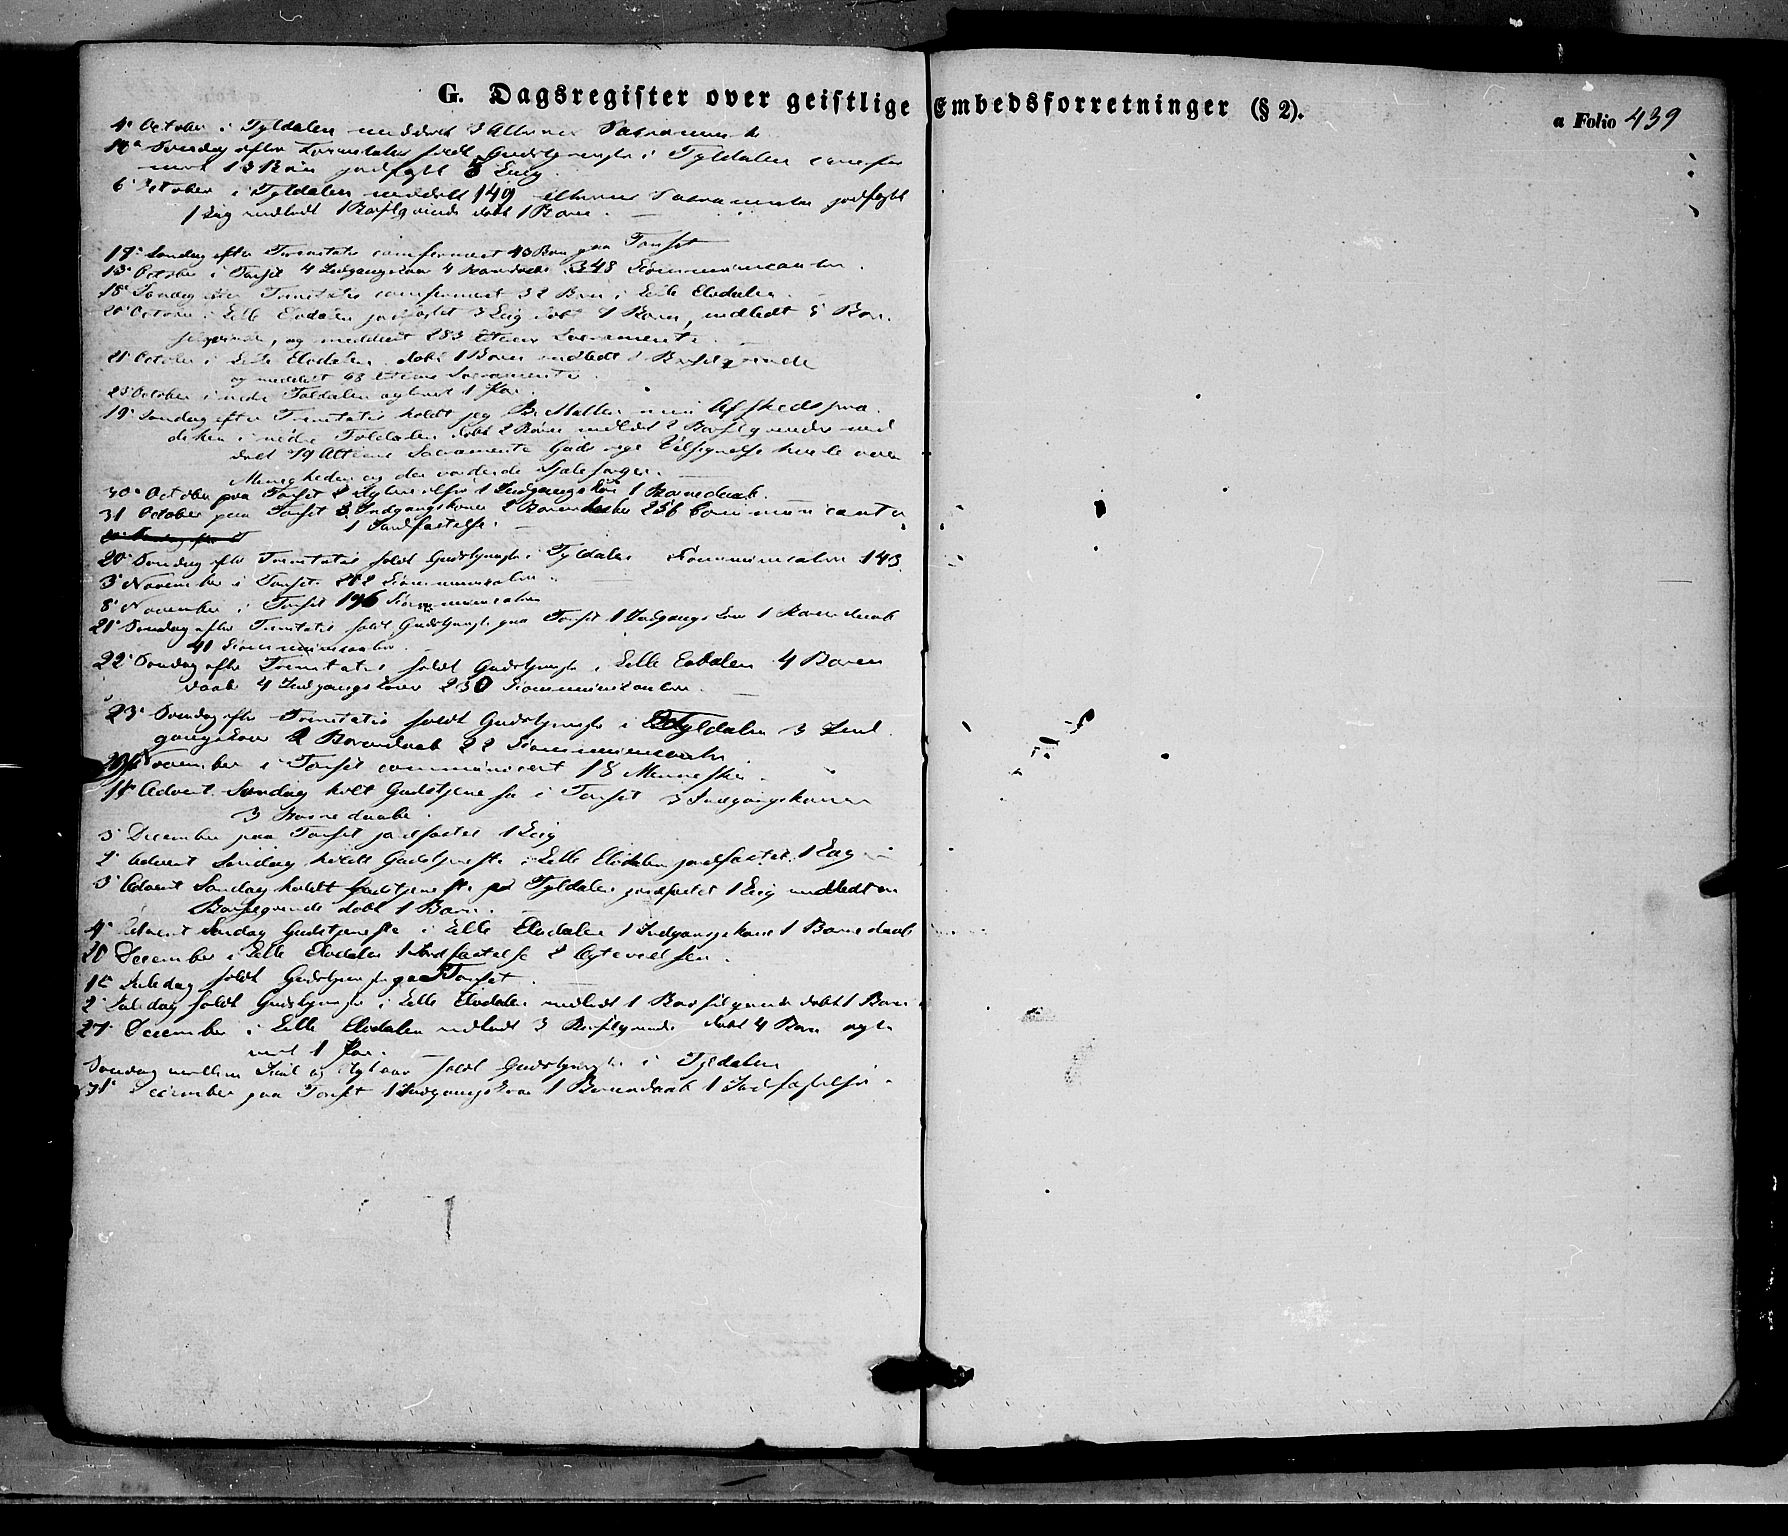 G. Dagsregister over geistlige Embedsforretninger (§ 2).
a Folio 439
4de October i Tyldalen meddelt 3 Alterens Sacramente
Søndag efter Trinitatis holdt Gudstjeneste i Tyldalen
13 Børn jordfæstet 5 Liig
6 October i Tyldalen meddelt 149 Alterens Sacramente jordfæstet
1 Liig indledt 1 Barselqvinde døbt 1 Barn.
17de Søndag efter Trinitatis confirmert 43 Børn paa Tønset
13 October i Tønset 4 Indgangskoner 4 348 Communicanter.
18de Søndag efter Trinitatis confirmert 32 Børn i Lille Elvdalen.
20 October i Lille Elvdalen jordfæstet 3 Liig døbt 1 Barn, indledt 5 Bar-
selqvinder, og meddelt 283 Alterens Sacramente.
21 October i Lille Elvdalen døbt 1 Barn indledt Barselqvinde
og meddelt 68 Alterens Sacramente.
25 October i nedre Foldalen egteviet 1 Par.
19de Søndag efter Trinitatis holdt jeg min Afskedspræ-
diken i nedre Foldalen døbt 2 Børn indledt 2 Barselqvinder med-
delt 79 Alterens Sacramente Guds rige Velsignelse hvile over
Menigheden og den vordende Sjælesørger.
30 October paa Tønset 2 1 Indgangskone 1 Barnedaab.
31 October paa Tønset 3 Indgangskoner 2 256 Communicanter
1 Jordfæstelse.
20de Søndag efter Trinitatis holdt Gudstjeneste i Tyldalen Communicanter 143.
3 November i Tønset 212 Communicanter.
8 November i Tønset 196 Communicanter
21de Søndag efter Trinitatis holdt Gudstjeneste paa Tønset 1 Indgangskone 1 Barnedaab
41 Communicanter.
22de Søndag efter Trinitatis holdt Gudstjeneste i Lille Elvdalen 4 Barne
daab 4 Indgangskoner 230 Communicanter.
23de Søndag efter Trinitatis holdt Gudstjeneste i Tyldalen 3 Ind-
gangskoner 2 Barnedaab 22 Communicanter.
November i Tønset communicert 18 Mennesker.
1ste Advent Søndag holdt Gudstjeneste i Tønset 3 Indgangskoner
3 Barnedaabe.
5 December paa Tønset jordfæstet 1 Liig
2 Advent Søndag holdt Gudstjeneste i Lille Elvdalen jordfæstet 1 Liig
3 Advent Søndag holdt Gudstjeneste på Tyldalen jordfæstet 1 Liig indledt en
Barselqvinde døbt 1 Barn.
4de Advent Søndag Gudstjeneste i Lille Elvdalen 1 Indgangskone 1 Barnedaab
20 December i Lille Elvdalen 1 Jordfæstelse 2 Ægtevielser.
1ste Juledag holdt Gudstjeneste paa Tønset.
2 Juledag holdt Gudstjeneste i Lille Elvdalen indledt 1 Barselqvinde døbt 1 Barn
27 December i Lille Elvdalen indledt 3 Barselqvinder døbt 4 Børn egte-
viet 1 Par.
Søndag mellem Juul og Nytaar holdt Gudstjeneste i Tyldalen
31 December paa Tønset 1 Indgangskone 1 Barnedaab 1 Jordfæstelse.